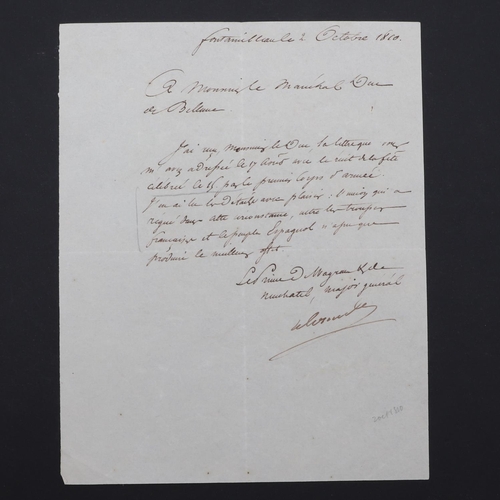 fontainebleau le 2 Octobre 1810.
A Monsieur le Maréchal Duc
de Bellune.
J'ai reçu, Monsieur le Duc, la lettre que vous
m'avez adressée le 17 Août avec le récit de la fête
célébré le 15 par le premier Corps d'armée.
J'en ai lu les détails avec plaisir; l'union qui a
regné dans cette circonstance, entre les troupes
françaises et le peuple Espagnol n'a pu que
produire le meilleur effet.
Le Prince D Wagram & de
neuchatel, major général